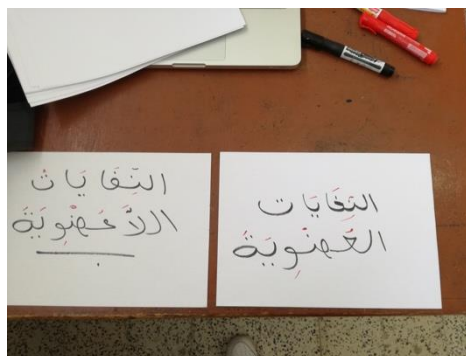 النِّفَايَات
العُضْوِيَّة
النِّفَايَاتُ
اللاَّعُضْوِيَّة